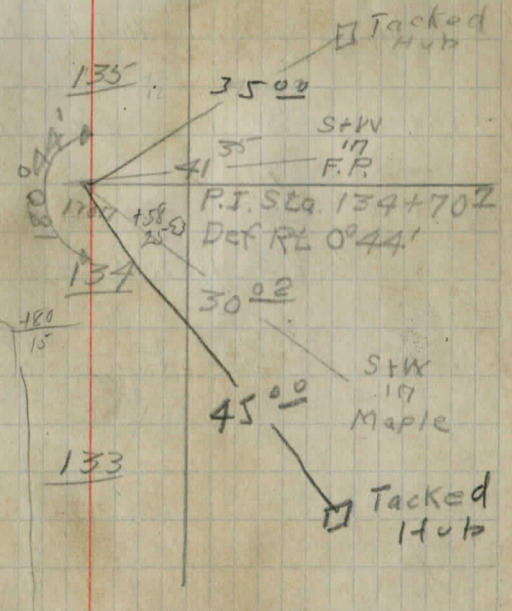 Tacked
Hub
135
35 00
S+W
in
F.P.
41 35
180° 44'
P.I. Sta. 134+70 2
Def Rt 0° 44'
+58
25
134
30 02
+80
15
S+W
in
Maple
45 00
133
Tacked
Hub